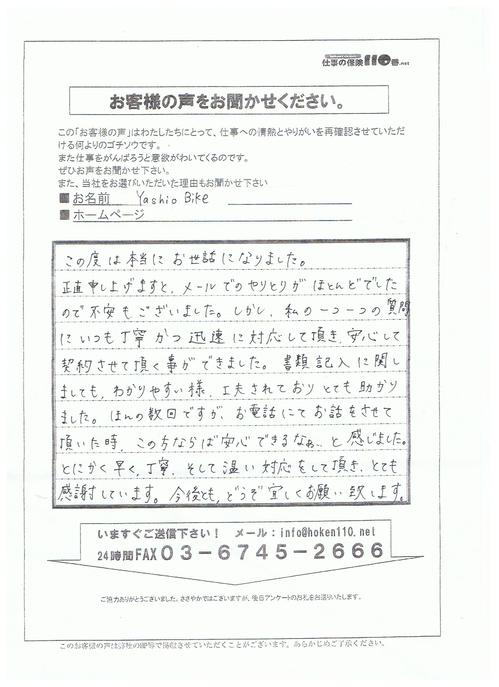 仕事の保険110番.net
お客様の声をお聞かせください。
この「お客様の声」はわたしたちにとって、仕事への情熱とやりがいを再確認させていただ
ける何よりのゴチソウです。
また仕事をがんばろうと意欲がわいてくるのです。
ぜひお声をお聞かせ下さい。
また、当社をお選びいただいた理由もお聞かせ下さい
■お名前 Yashio Bike
■ホームページ
この度は本当に お世話になりました。
正直申し上げますと、メールでのやりとりが ほとんどでした
ので不安もございました。しかし、私の一つ一つの質問
にいつも丁寧かつ迅速に対応して頂き、安心して
契約させて頂く事ができました。書類記入に関し
ましても、わかりやすい様、工夫されており とても助かり
ました。ほんの数回ですが、お電話にてお話をさせて
頂いた時、この方ならば安心できるなぁ、と感じました。
とにかく早く、丁寧、そして温い対応をして頂き、とても
感謝しています。今後とも、どうぞ宜しくお願い致します。
いますぐご送信下さい! メール:info@hoken110.net
24時間FAX03-6745-2666
ご協力ありがとうございました。ささやかではございますが、後日アンケートのお礼をお送りいたします。
このお客様の声は弊社の販促で掲載させていただくことがございます。あらかじめご了承ください。